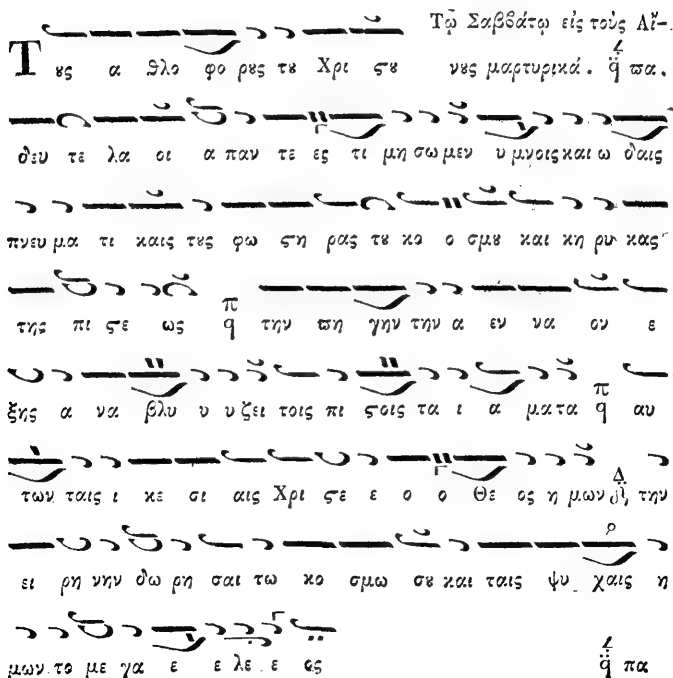 Τῷ Σαββάτῳ εἰς τοὺς Αἴ-
Τȣς α θλο φο ρȣς τȣ Χρι ϛȣ νȣς μαρτυρικά. q̈ πα.
δευ τε λα οι α παν τε ες τι μη σω μεν υ μνοις και ω δαις
πνευ μα τι καις τȣς φω ϛη ρας τȣ κο ο σμȣ και κη ρυ κας
της πι ϛε ως π q την πη γην την α εν να ον ε
ξης α να βλυ υ υ ζει τοις πι ϛοις τα ι α ματα π q αυ
των ταις ι κε σι αις Χρι ϛε ε ο ο Θε ος η μων Δ την
ει ρη νην δω ρη σαι τω κο σμω σȣ και ταις ψυ χαις η
μων το με γα ε ε λε ε ος q̈ πα